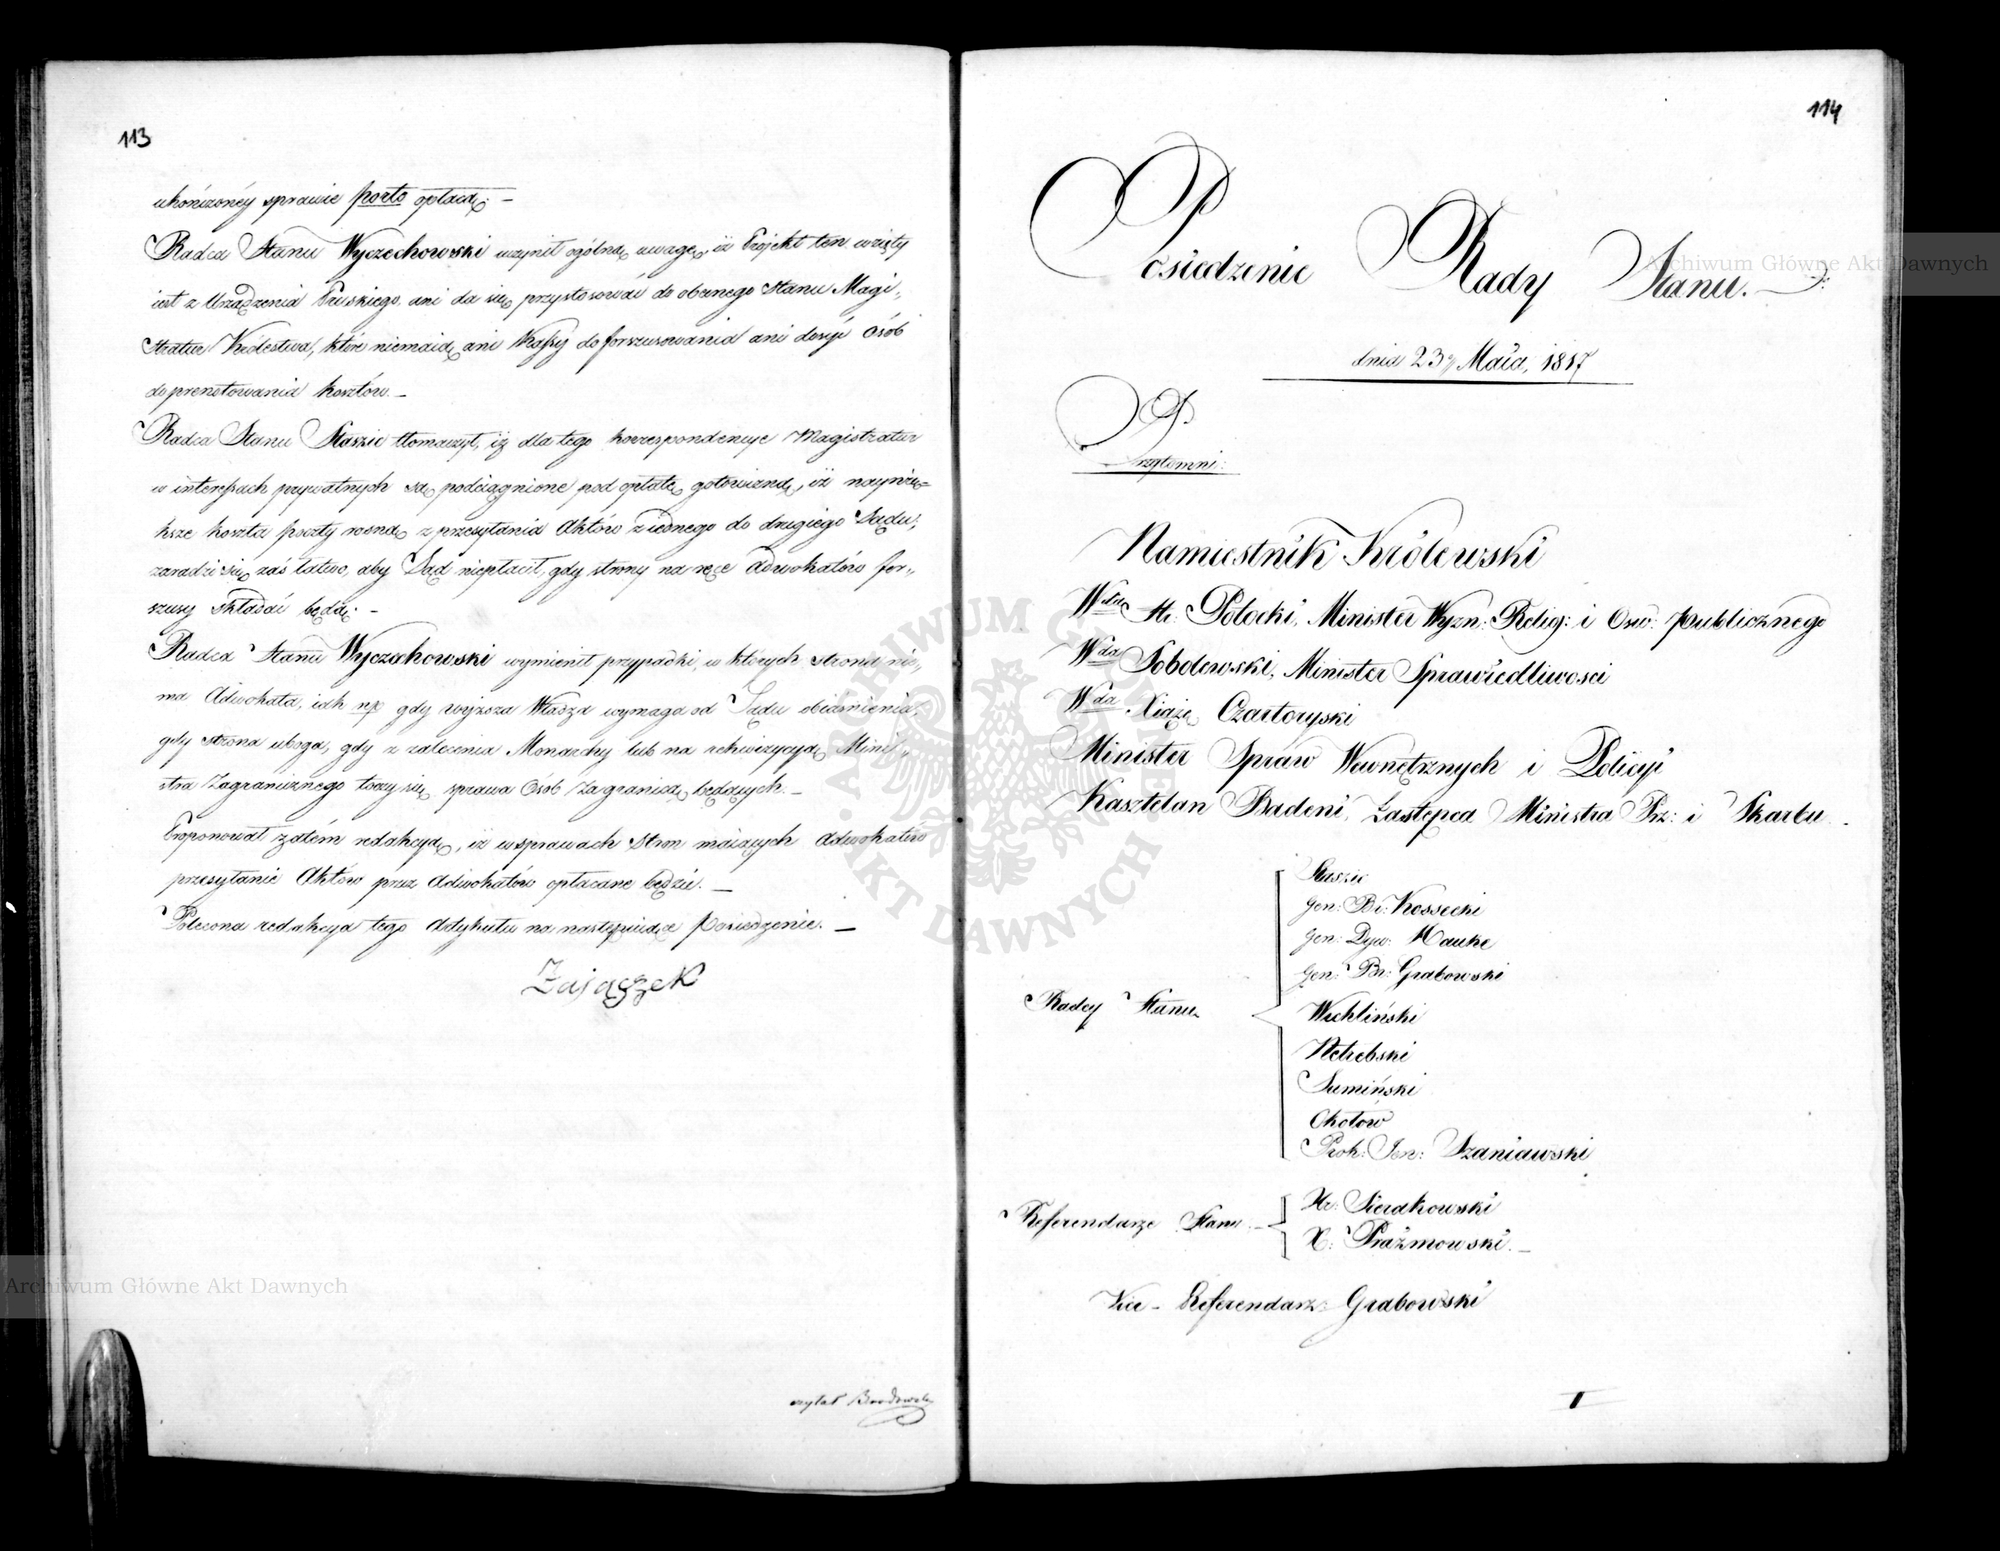 113
ukończonéy sprawie porto opłacą. —
Radca Stanu Wyczechowski uczynił ogólną uwagę, iż Projekt ten wzięty
iest z Urządzenia Pruskiego, ani da się przystosować do obecnego Stanu Magi-
stratur Królestwa, które niemaią ani Kassy do forszusowania ani dosyć Osób
do prenotowania kosztów. —
Radca Stanu Staszic tłomaczył, iż dla tego korrespondencye Magistratur
w interessach prywatnych są podciągnione pod opłatę gotowizną, iż naywię-
ksze koszta poczty rosną z przesyłania Aktów z iednego do drugiego Sądu,
zaradzi się zaś łatwo, aby Sąd niepłacił, gdy strony na ręce Adwokatów for-
szusy składać będą. —
Radca Stanu Wyczechowski wymienił przypadki, w których strona nie-
ma Adwokata, iak np. gdy wyższa Władza wymaga od Sądu obiaśnienia,
gdy strona uboga, gdy z zalecenia Monarchy lub na rekwizycyą Mini-
stra Zagranicznego toczy się sprawa Osób Zagranicą będących. —
Proponował zatém redakcyą, iż w sprawach Stron maiących Adwokatów
przesyłanie Aktów przez Adwokatów opłacane będzie. —
Polecona redakcya tego Artykułu na następuiące posiedzenie. —
Zajączek
czytał Brodowski
114
Posiedzenie Rady Stanu.
dnia 23 Maia, 1817
Przytomni:
Namiestnik Królewski
Wda Hr: Potocki, Minister Wyzn: Relig: i Osw: publicznego
Wda Sobolewski, Minister Sprawiedliwosci
Wda Xiąże Czartoryski
Minister Spraw Wewnętrznych i Policyi
Kasztelan Badeni, Zastępca Ministra Prz: i Skarbu
Staszic
Gen: Br: Kossecki
Gen: Dyw: Hauke
Gen: Br: Grabowski
Radcy Stanu
Wichliński
Nakebski
Sumiński
Okołow
Prok: Jen: Szaniawski
Referendarze Stanu
Hr: Sierakowski
X: Prażmowski. —
Vice-Referendarz Grabowski
Archiwum Główne Akt Dawnych
Archiwum Główne Akt Dawnych
ARCHIWUM GŁÓWNE AKT DAWNYCH